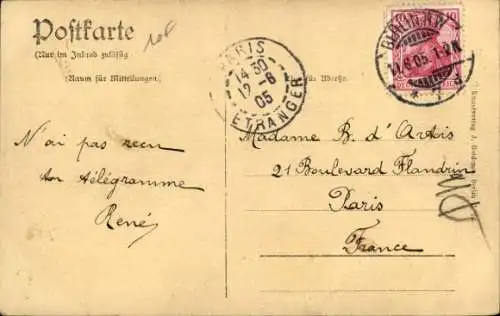 Postkarte
(Nur im Inland zulässig
(Raum für Mitteilungen)
für Adresse.
PARIS
14 30
12-6
05
ETRANGER
BERLIN N.W.
6.05. 1-2N.
10
N'ai pas recu
ton télégramme
René
Madame B. d'Artois
21 Boulevard Flandrin
Paris
France